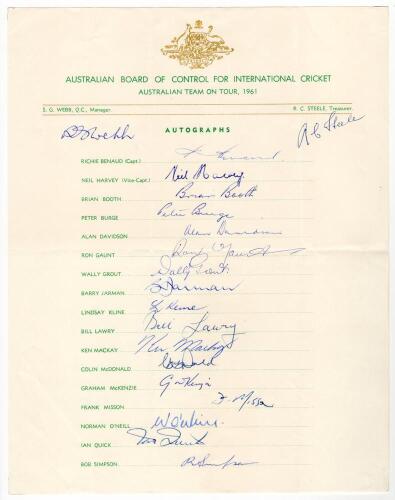 AUSTRALIAN BOARD OF CONTROL FOR INTERNATIONAL CRICKET
AUSTRALIAN TEAM ON TOUR, 1961
S. G. WEBB, Q.C., Manager. R. C. STEELE, Treasurer.
S G Webb AUTOGRAPHS R C Steele
RICHIE BENAUD (Capt.) R Benaud
NEIL HARVEY (Vice-Capt.) Neil Harvey
BRIAN BOOTH Brian Booth
PETER BURGE Peter Burge
ALAN DAVIDSON Alan Davidson
RON GAUNT Ron Gaunt
WALLY GROUT Wally Grout
BARRY JARMAN B Jarman
LINDSAY KLINE L Kline
BILL LAWRY Bill Lawry
KEN MACKAY Ken Mackay
COLIN McDONALD
GRAHAM McKENZIE
FRANK MISSON F. Misson
NORMAN O'NEILL N O'Neill
IAN QUICK Ian Quick
BOB SIMPSON R Simpson